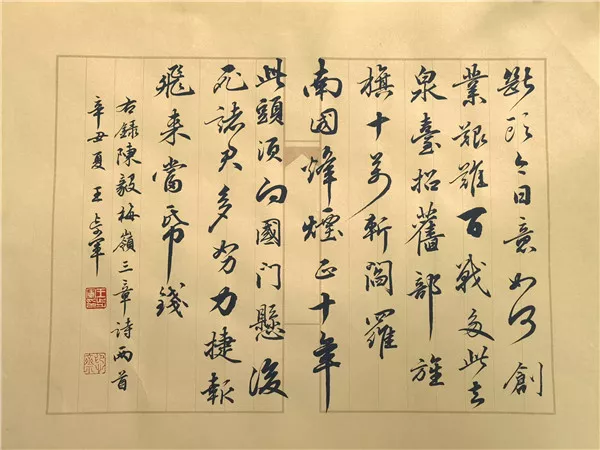 斷頭今日意如何創
業艱難百戰多此去
泉臺招舊部旌
旗十萬斬閻羅
南國烽煙正十年
此頭須向國門懸後
死諸君多努力捷報
飛來當帋錢
右錄陳毅梅嶺三章詩兩首
辛丑夏王
軍